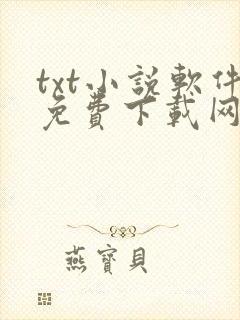 txt小説軟件
免費下載网
燕寶貝